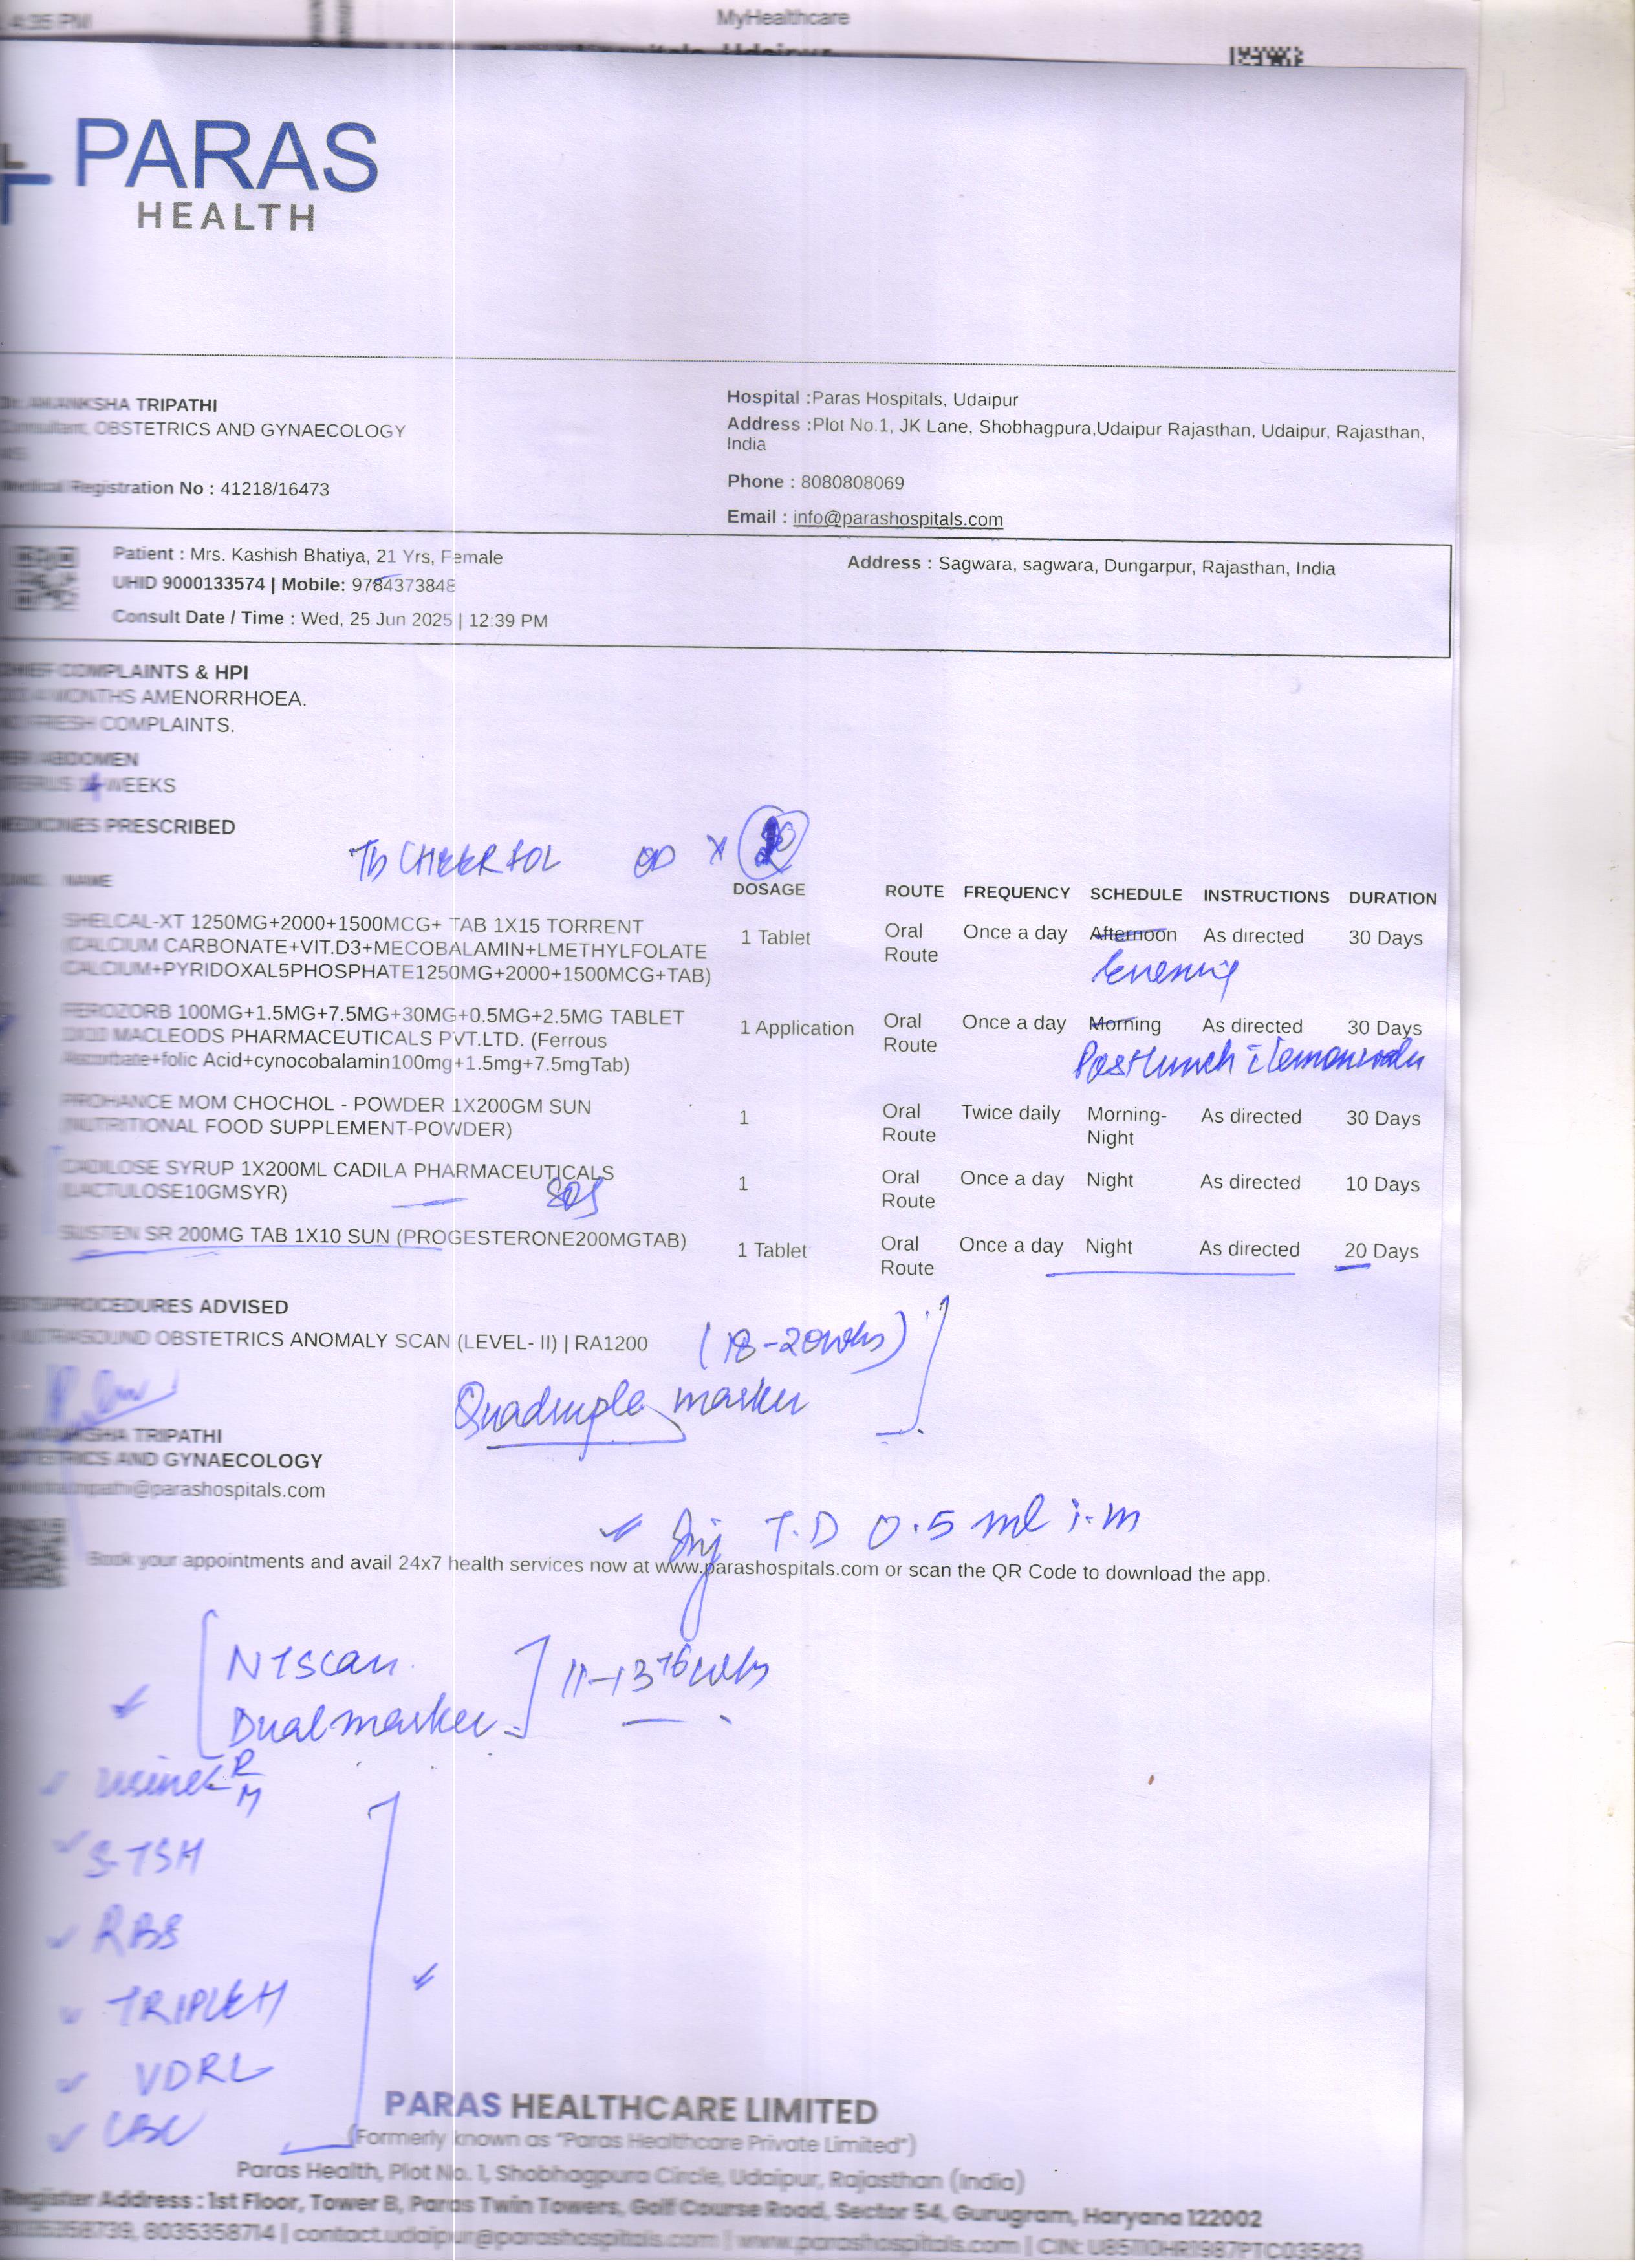 4:35 PM
MyHealthcare
PARAS
HEALTH
AKANKSHA TRIPATHI
Consultant, OBSTETRICS AND GYNAECOLOGY
Medical Registration No : 41218/16473
Hospital :Paras Hospitals, Udaipur
Address :Plot No.1, JK Lane, Shobhagpura,Udaipur Rajasthan, Udaipur, Rajasthan,
India
Phone : 8080808069
Email : info@parashospitals.com
Patient : Mrs. Kashish Bhatiya, 21 Yrs, Female
UHID 9000133574 | Mobile: 9784373848
Consult Date / Time : Wed, 25 Jun 2025 | 12:39 PM
Address : Sagwara, sagwara, Dungarpur, Rajasthan, India
CHIEF COMPLAINTS & HPI
MONTHS AMENORRHOEA.
FRESH COMPLAINTS.
PER ABDOMEN
UTERUS WEEKS
MEDICINES PRESCRIBED
Tb CHEERFOL OD x
NAME DOSAGE ROUTE FREQUENCY SCHEDULE INSTRUCTIONS DURATION
SHELCAL-XT 1250MG+2000+1500MCG+ TAB 1X15 TORRENT
(CALCIUM CARBONATE+VIT.D3+MECOBALAMIN+LMETHYLFOLATE
CALCIUM+PYRIDOXAL5PHOSPHATE1250MG+2000+1500MCG+TAB)
1 Tablet Oral Route Once a day Afternoon As directed 30 Days
Evening
FEROZORB 100MG+1.5MG+7.5MG+30MG+0.5MG+2.5MG TABLET
MACLEODS PHARMACEUTICALS PVT.LTD. (Ferrous
Ascorbate+folic Acid+cynocobalamin100mg+1.5mg+7.5mgTab)
1 Application Oral Route Once a day Morning As directed 30 Days
Postlunch
PROHANCE MOM CHOCHOL - POWDER 1X200GM SUN
(NUTRITIONAL FOOD SUPPLEMENT-POWDER)
1 Oral Route Twice daily Morning-Night As directed 30 Days
CADILOSE SYRUP 1X200ML CADILA PHARMACEUTICALS
(LACTULOSE10GMSYR)
SOS
1 Oral Route Once a day Night As directed 10 Days
SUSTEN SR 200MG TAB 1X10 SUN (PROGESTERONE200MGTAB)
1 Tablet Oral Route Once a day Night As directed 20 Days
TESTS/PROCEDURES ADVISED
ULTRASOUND OBSTETRICS ANOMALY SCAN (LEVEL- II) | RA1200
(18-20wks)
Quadruple marker
AKANKSHA TRIPATHI
OBSTETRICS AND GYNAECOLOGY
@parashospitals.com
Inj T.D 0.5 ml i.m
Book your appointments and avail 24x7 health services now at www.parashospitals.com or scan the QR Code to download the app.
NT scan
Dual marker
11-13+6 wks
urine R/M
S.TSH
RBS
TRIPLE H
VDRL
CBC
PARAS HEALTHCARE LIMITED
(Formerly known as "Paras Healthcare Private Limited")
Paras Health, Plot No. 1, Shobhagpura Circle, Udaipur, Rajasthan (India)
Register Address : 1st Floor, Tower B, Paras Twin Towers, Golf Course Road, Sector 54, Gurugram, Haryana 122002
8035358714 | contact.udaipur@parashospitals.com | www.parashospitals.com | CIN: U85110HR1987PTC035823